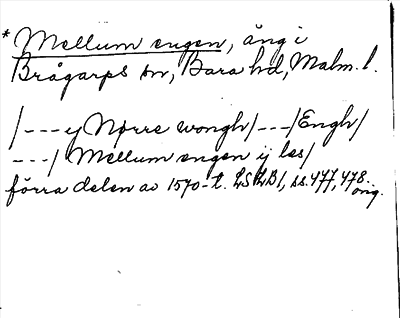 * Mellum engen, äng i
Brågarps sn, Bara hd, Malm. l.
/---ij Nørre wongh/---/Engh/
---/ Mellum engen ij les/
förra delen av 1570-t. LSLB1, ss. 477, 478.
orig.